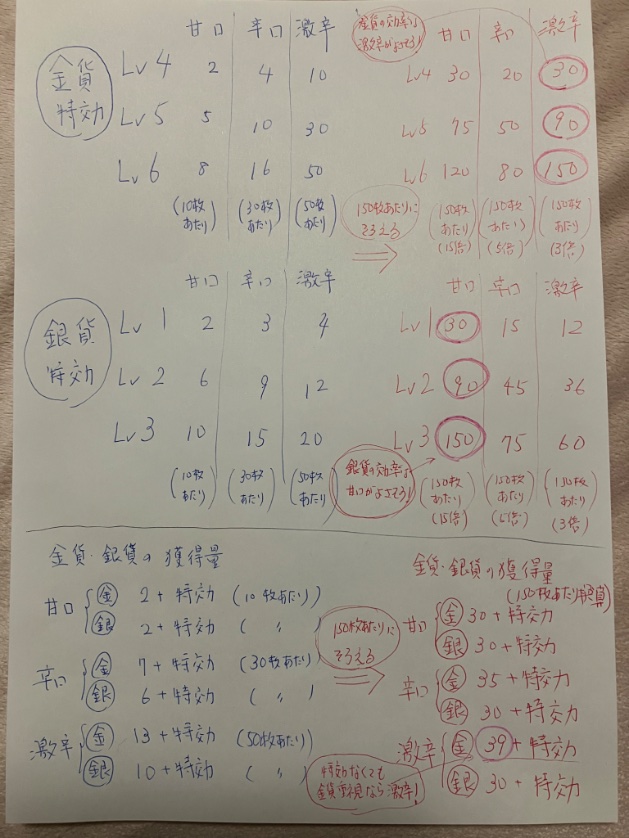 金貨の効率は
激辛がよさそう!
甘口 辛口 激辛 甘口 辛口 激辛
金貨
特効
Lv4 2 4 10 Lv4 30 20 30
Lv5 5 10 30 Lv5 75 50 90
Lv6 8 16 50 Lv6 120 80 150
(10枚あたり) (30枚あたり) (50枚あたり) 150枚あたりにそろえる ⇒ (150枚あたり)(15倍) (150枚あたり)(5倍) (150枚あたり)(3倍)
甘口 辛口 激辛 甘口 辛口 激辛
銀貨
特効
Lv1 2 3 4 Lv1 30 15 12
Lv2 6 9 12 Lv2 90 45 36
Lv3 10 15 20 Lv3 150 75 60
(10枚あたり) (30枚あたり) (50枚あたり) 銀貨の効率は甘口がよさそう! (150枚あたり)(15倍) (150枚あたり)(5倍) (150枚あたり)(3倍)
金貨・銀貨の獲得量
甘口 金 2+特効 (10枚あたり)
銀 2+特効 ( 〃 )
辛口 金 7+特効 (30枚あたり)
銀 6+特効 ( 〃 )
激辛 金 13+特効 (50枚あたり)
銀 10+特効 ( 〃 )
150枚あたりに
そろえる
⇒
特効なくても
金貨重視なら激辛!
金貨・銀貨の獲得量
(150枚あたり換算)
甘口 金 30+特効
銀 30+特効
辛口 金 35+特効
銀 30+特効
激辛 金 39+特効
銀 30+特効